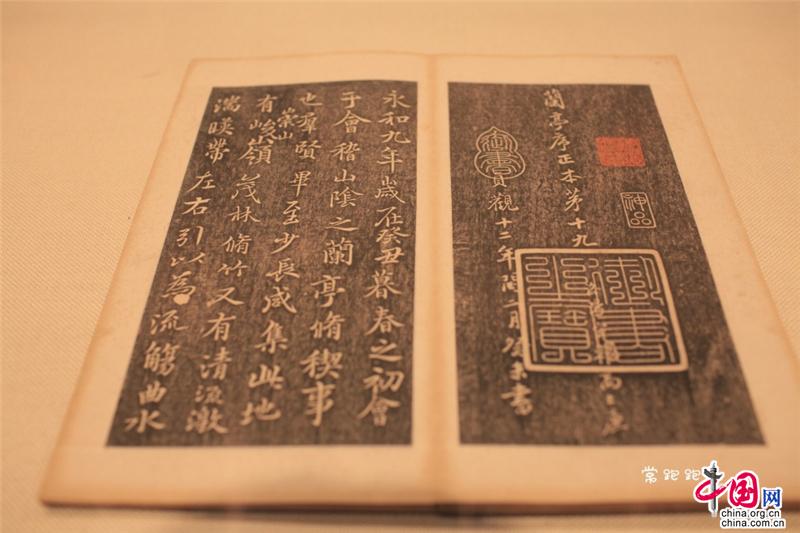 蘭亭序正本第十九
御書
神品
貞觀十二年閏二月
書
御書之寶
永和九年歲在癸丑暮春之初會
于會稽山陰之蘭亭脩稧事
也羣賢畢至少長咸集此地
有崇山峻領茂林脩竹又有清流激
湍暎帶左右引以為流觴曲水
常跑跑
中国网
china.org.cn
china.com.cn